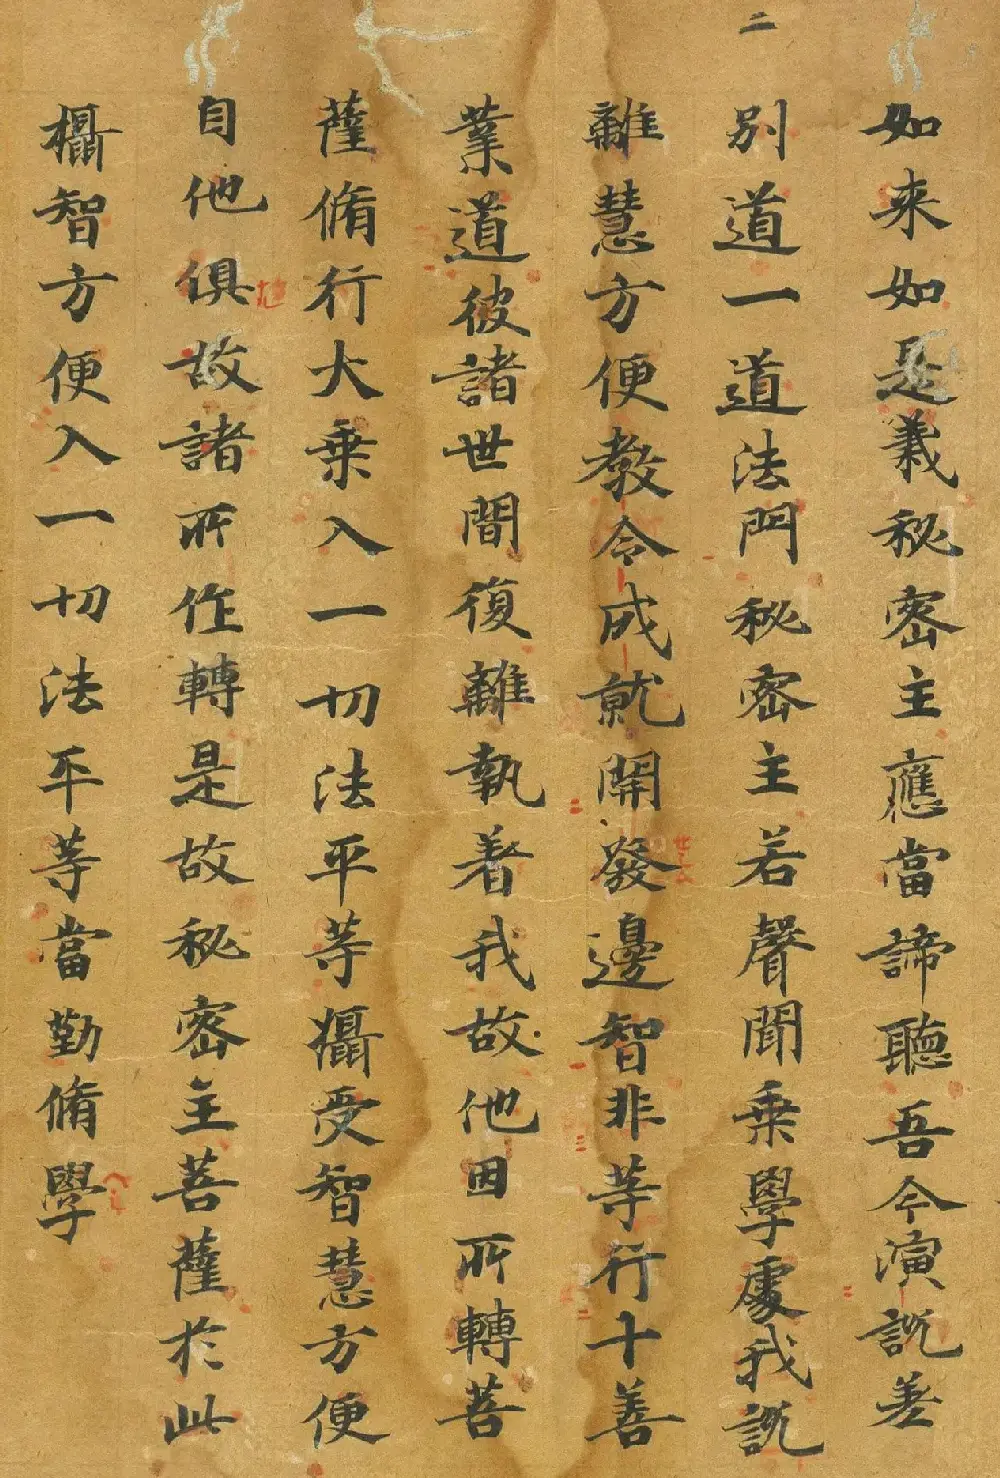 二
如来如是義秘密主應當諦聽吾今演說差
別道一道法門秘密主若聲聞乗學處我說
離慧方便教令成就開發邊智非等行十善
業道彼諸世間復離執著我故他因所轉菩
薩脩行大乗入一切法平等攝受智慧方便
自他俱故諸所作轉是故秘密主菩薩於此
攝智方便入一切法平等當勤脩學